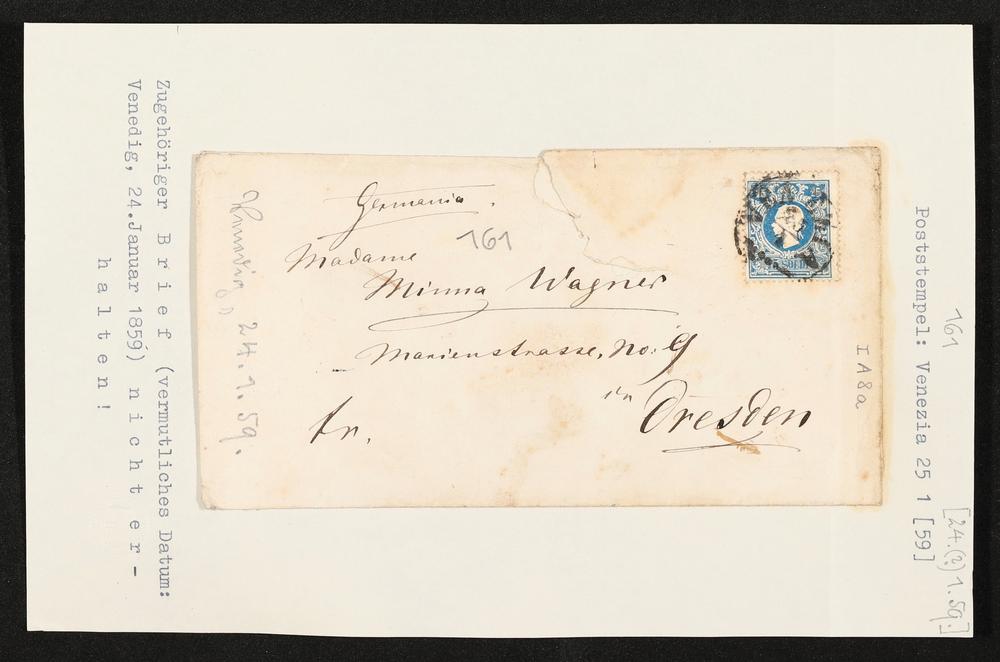 Poststempel: Venezia 25 1 [59]
161
[24.(?)1.59.]
Germania.
161
Madame
Minna Wagner
Marienstrasse, No: 9
in Dresden
fr.
I A 8 a
Venedig 24.1.59.
Zugehöriger B r i e f (vermutliches Datum:
Venedig, 24.Januar 1859) n i c h t e r -
h a l t e n !